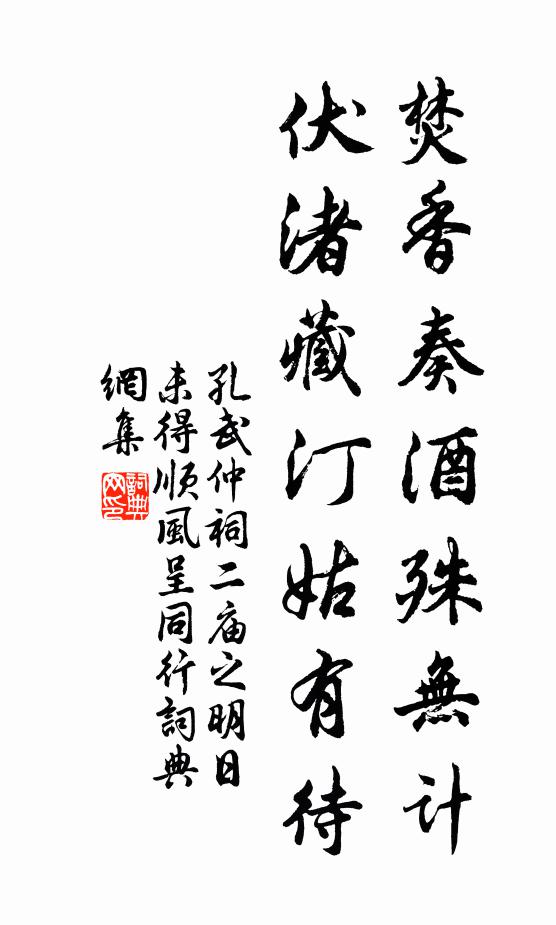 焚香奏酒殊無计
伏渚藏汀姑有待
孔武仲祠二庙之明日
未得順風呈同行詞典
網集
詞典網印